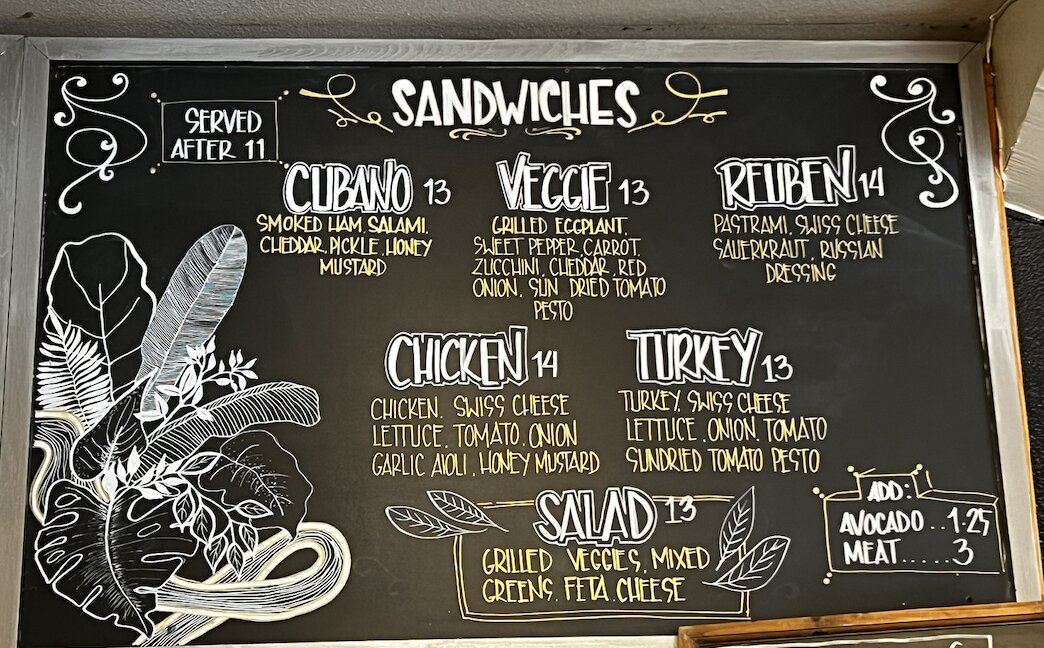 SANDWICHES
SERVED
AFTER 11
CUBANO 13
SMOKED HAM, SALAMI,
CHEDDAR, PICKLE, HONEY
MUSTARD
VEGGIE 13
GRILLED EGGPLANT,
SWEET PEPPER, CARROT,
ZUCCHINI, CHEDDAR, RED
ONION, SUN DRIED TOMATO
PESTO
REUBEN 14
PASTRAMI, SWISS CHEESE
SAUERKRAUT, RUSSIAN
DRESSING
CHICKEN 14
CHICKEN, SWISS CHEESE
LETTUCE, TOMATO, ONION
GARLIC AIOLI, HONEY MUSTARD
TURKEY 13
TURKEY, SWISS CHEESE
LETTUCE, ONION, TOMATO
SUNDRIED TOMATO PESTO
SALAD 13
GRILLED VEGGIES, MIXED
GREENS, FETA CHEESE
ADD:
AVOCADO .. 1.25
MEAT ..... 3